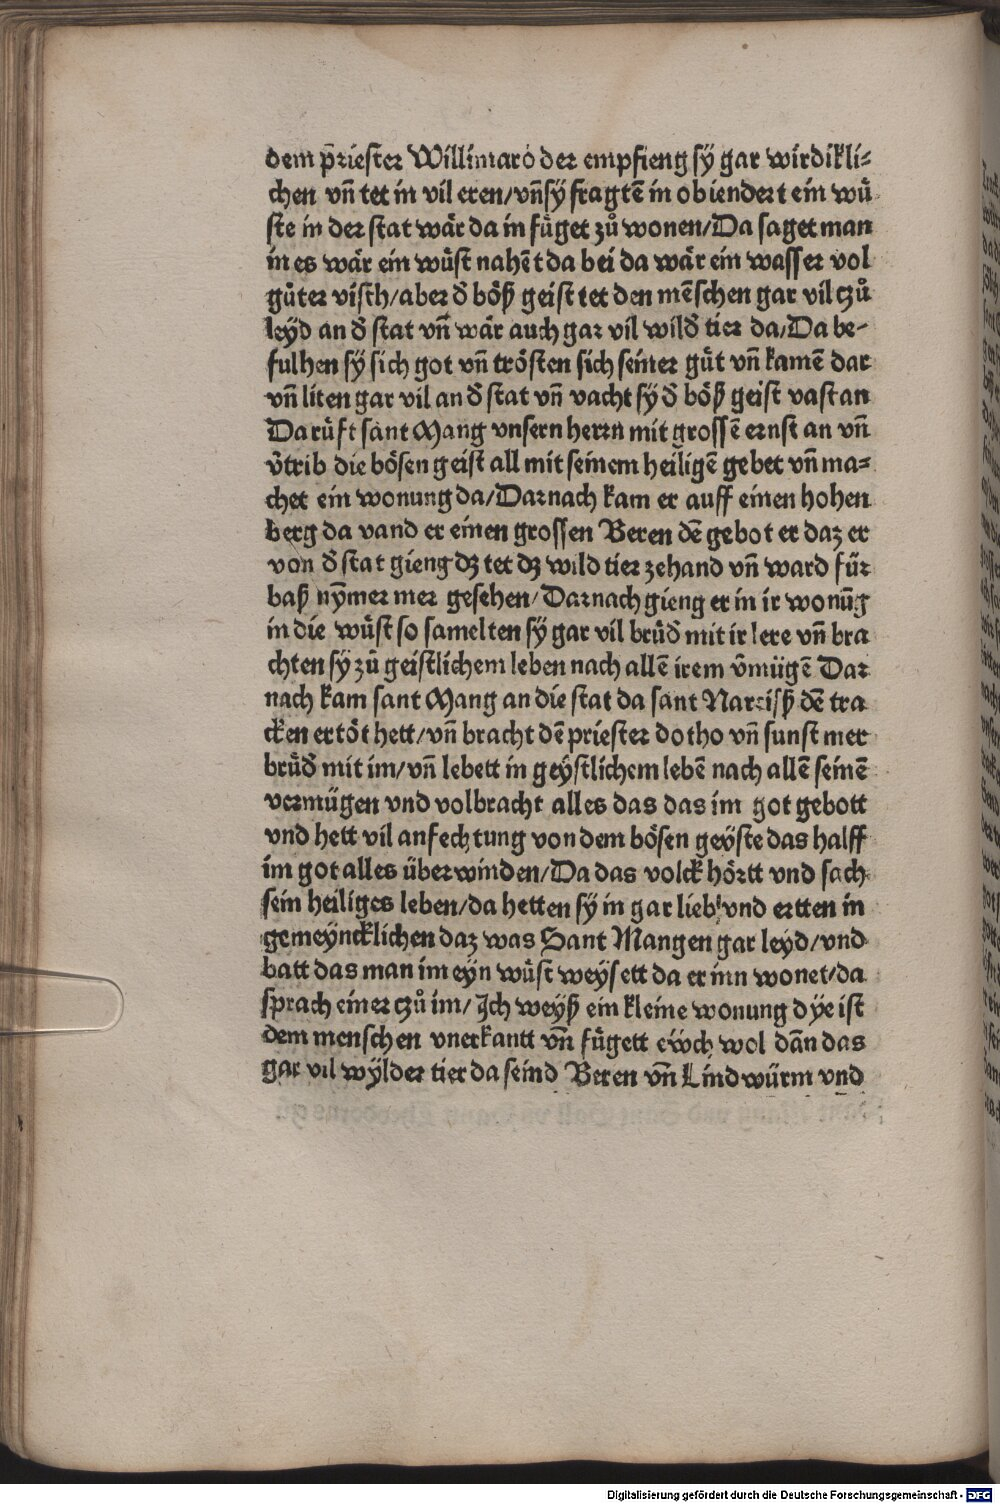 dem p̄riester Willimaro der empfieng sÿ gar wirdikli⸗
chen vn̄ tet in vil eren/vn̄ sÿ fragtē in ob iendert ein wuͤ
ste in der stat waͤr da in fuͤget zuͦ wonen/Da saget man
in es waͤr ein wuͤst nahēt da bei da waͤr ein wasser vol
guͤter visch/aber d̄ boͤß geist tet den mēschen gar vil tzuͦ
leÿd an d̄ stat vn̄ waͤr auch gar vil wild̄ tier da/Da be⸗
fulhen sÿ sich got vn̄ troͤsten sich seiner guͤt vn̄ kamē dar
vn̄ liten gar vil an d̄ stat vn̄ vacht sÿ d̄ boͤß geist vast an
Da ruͤft sant Mang vnsern herrn mit grossē ernst an vn̄
v̄trib die boͤsen geist all mit seinem heiligē gebet vn̄ ma⸗
chet ein wonung da/Darnach kam er auff einen hohen
berg da vand er einen grossen Beren dē gebot er daz er
von d̄ stat gieng dz tet dz wild tier zehand vn̄ ward fuͤr
baß nȳmer mer gesehen/Darnach gieng er in ir wonūg
in die wuͤst so samelten sÿ gar vil bruͤd̄ mit ir lere vn̄ bra
chten sÿ zuͦ geistlichem leben nach allē irem v̄muͤgē Dar
nach kam sant Mang an die stat da sant Narcisß dē tra
cken ertoͤt hett/vn̄ bracht dē priester dotho vn̄ sunst mer
bruͤd̄ mit im/vn̄ lebett in geÿstlichem lebē nach allē seinē
vermuͤgen vnd volbracht alles das das im got gebott
vnd hett vil anfechtung von dem boͤsen geÿste das halff
im got alles uͤberwinden/Da das volck hoͤrtt vnd sach
sein heiliges leben/da hetten sÿ in gar lieb vnd ertten in
gemeyncklichen daz was Sant Mangen gar leyd/vnd
batt das man im eyn wuͤst weÿsett da er inn wonet/da
sprach einer tzuͦ im/Jch weÿß ein kleine wonung dÿe ist
dem menschen vnerkantt vn̄ fuͤgett eẅch wol dān das
gar vil wÿlder tier da seind Beren vn̄ Lindwuͤrm vnd
Digitalisierung gefördert durch die Deutsche Forschungsgemeinschaft - DFG